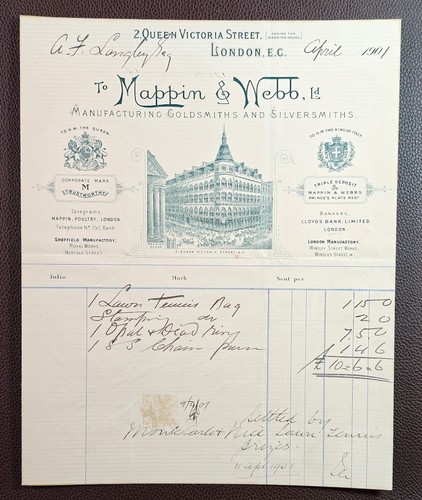 2, QUEEN VICTORIA STREET, (FACING THE MANSION HOUSE)
LONDON, E.C. April 1901
A. F. Longley Esq
To Mappin & Webb, Ld
MANUFACTURING GOLDSMITHS AND SILVERSMITHS.
TO H.M. THE QUEEN.
CORPORATE MARK
M
TRUSTWORTHY
Telegrams,
MAPPIN, POULTRY, LONDON.
Telephone No 751, Bank.
SHEFFIELD MANUFACTORY,
ROYAL WORKS,
NORFOLK STREET.
2, QUEEN VICTORIA STREET, E.C.
TO H.M. THE KING OF ITALY.
TRIPLE DEPOSIT
ON
MAPPIN & WEBBS
PRINCE'S PLATE REGD
BANKERS,
LLOYDS BANK, LIMITED.
LONDON.
LONDON MANUFACTORY,
WINSLEY STREET WORKS,
WINSLEY STREET, W.
Folio Mark Sent per
1 Lawn Tennis Bag 1 15 0
Stamping do 2 0
1 Opal & Diad Ring 7 5 0
1 S S Chain purse 1 4 6
£10=6=6
Settled by
Monte Carlo & Nice Lawn Tennis
Prizes
11 apl 1901